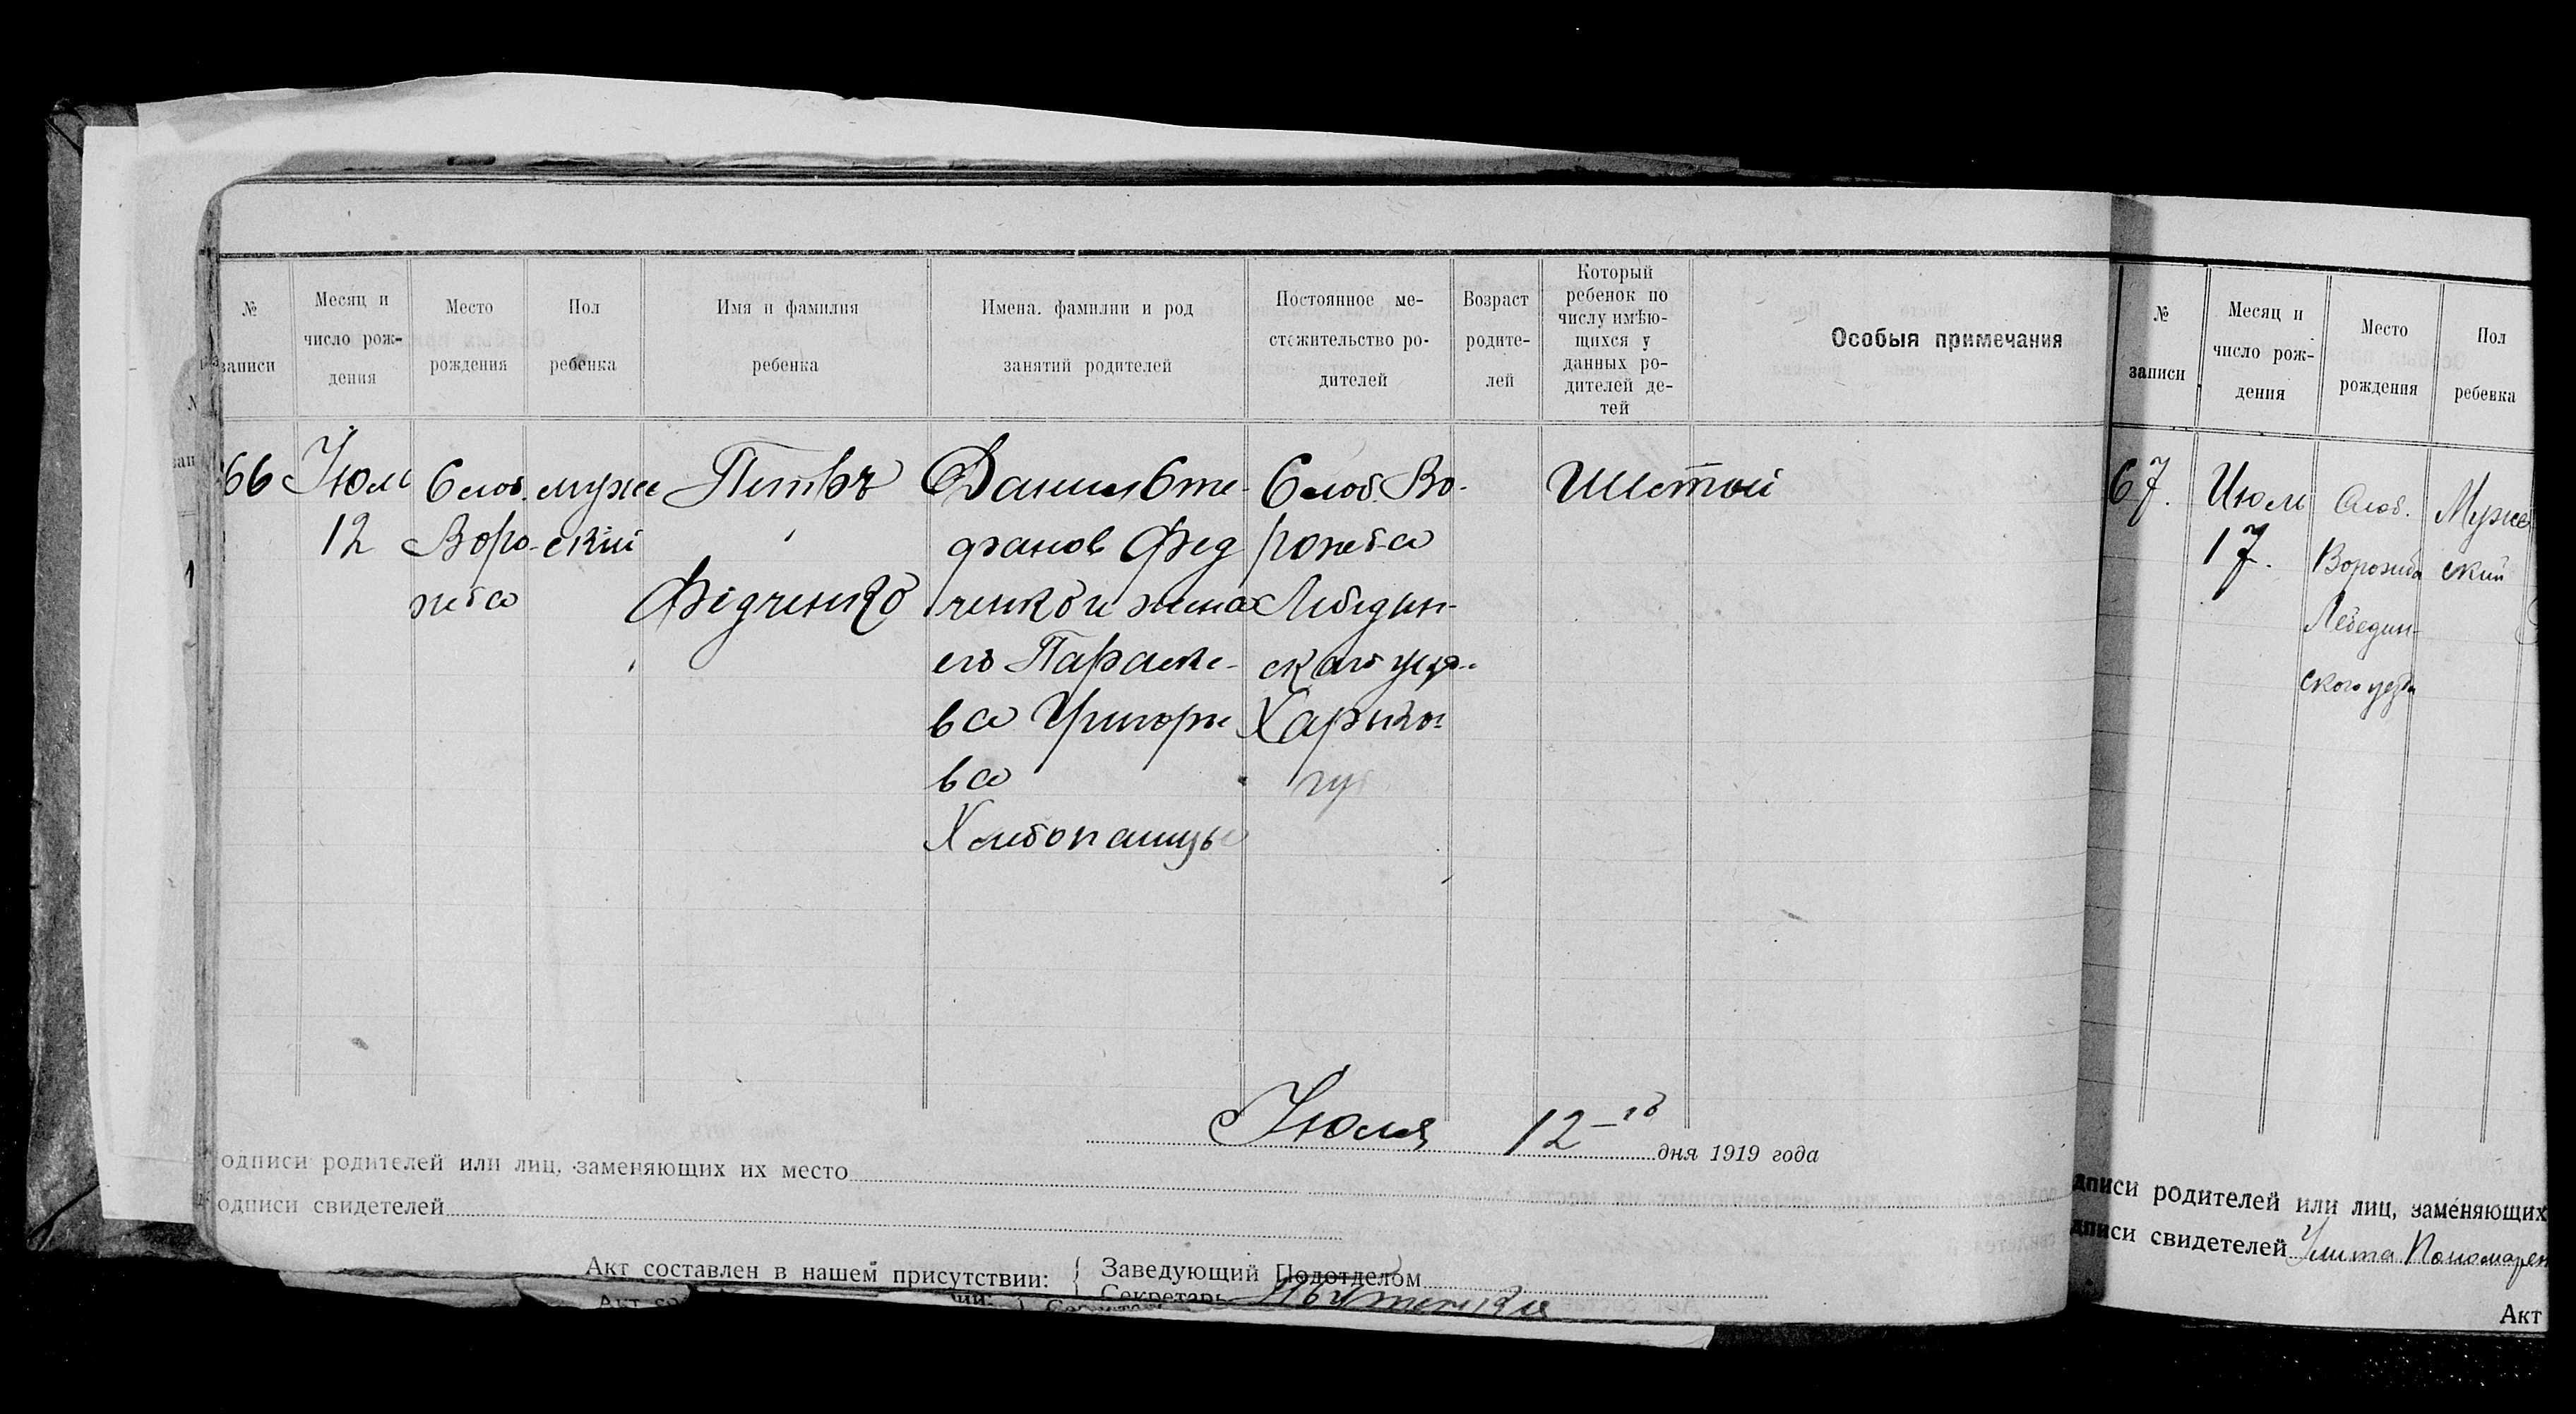 №
записи
Месяц и
число рож-
дения
Место
рождения
Пол
ребенка
Имя и фамилия
ребенка
Имена. фамилии и род
занятий родителей
Постоянное ме-
стожительство ро-
дителей
Возраст
родите-
лей
Который
ребенок по
числу имѣю-
щихся у
данных ро-
дителей де-
тей
Особыя примечания
66
Июль
12
Слоб.
Воро-
жба
мужс
ский
Петръ
Федченко
Данил Сте-
фанов Фед
ченко и жена
его Параске-
ва Григорье
ва
Хлебопашцы
Слоб. Во-
рожба
Лебедин-
скаго уез.
Харьков
гу
Шестой
Июля 12-го дня 1919 года
одписи родителей или лиц, заменяющих их место
одписи свидетелей
Акт составлен в нашем присутствии:
Заведующий Подотделом
Секретарь
№
записи
Месяц и
число рож-
дения
Место
рождения
Пол
ребенка
67.
Июль
17.
Слоб.
Ворожба
Лебедин-
ского уезда
Мужс
ский
дписи родителей или лиц, заменяющих
дписи свидетелей Улита Пономарен
Акт